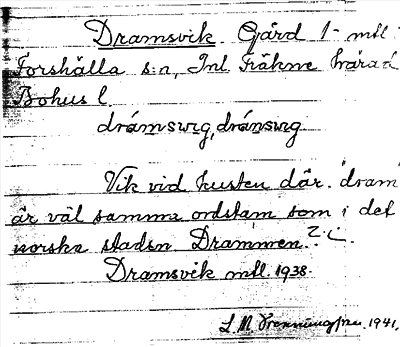 Dramsvik Gård 1- mtl.
Forshälla s:n, Inl. Fräkne härad
Bohus l.
drámswg, dránswg
Vik vid kusten där. 'dram'
är väl samma ordstam som i det
norska staden Drammen.?
Dramsvik mtl. 1938.
L. M. 1941.